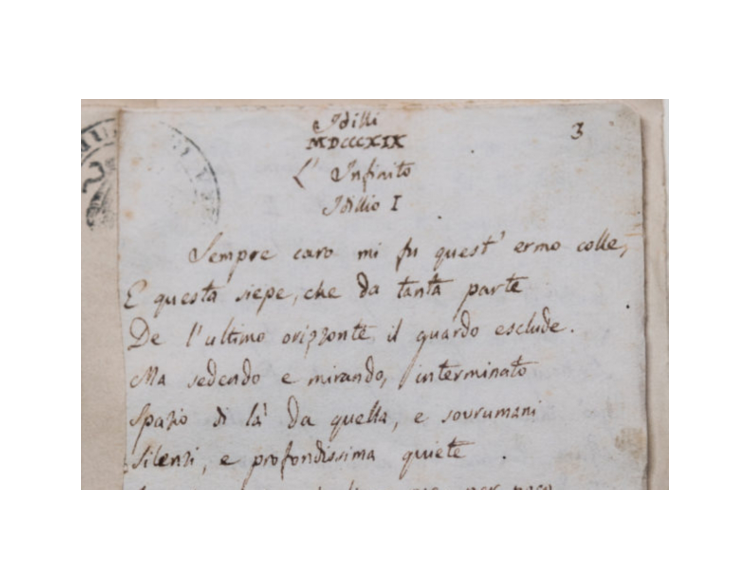 Idilli
MDCCCXIX
3
L'Infinito
Idillio I
Sempre caro mi fu quest' ermo colle,
E questa siepe, che da tanta parte
De l'ultimo orizzonte il guardo esclude.
Ma sedendo e mirando, interminato
Spazio di là da quella, e sovrumani
Silenzi, e profondissima quiete